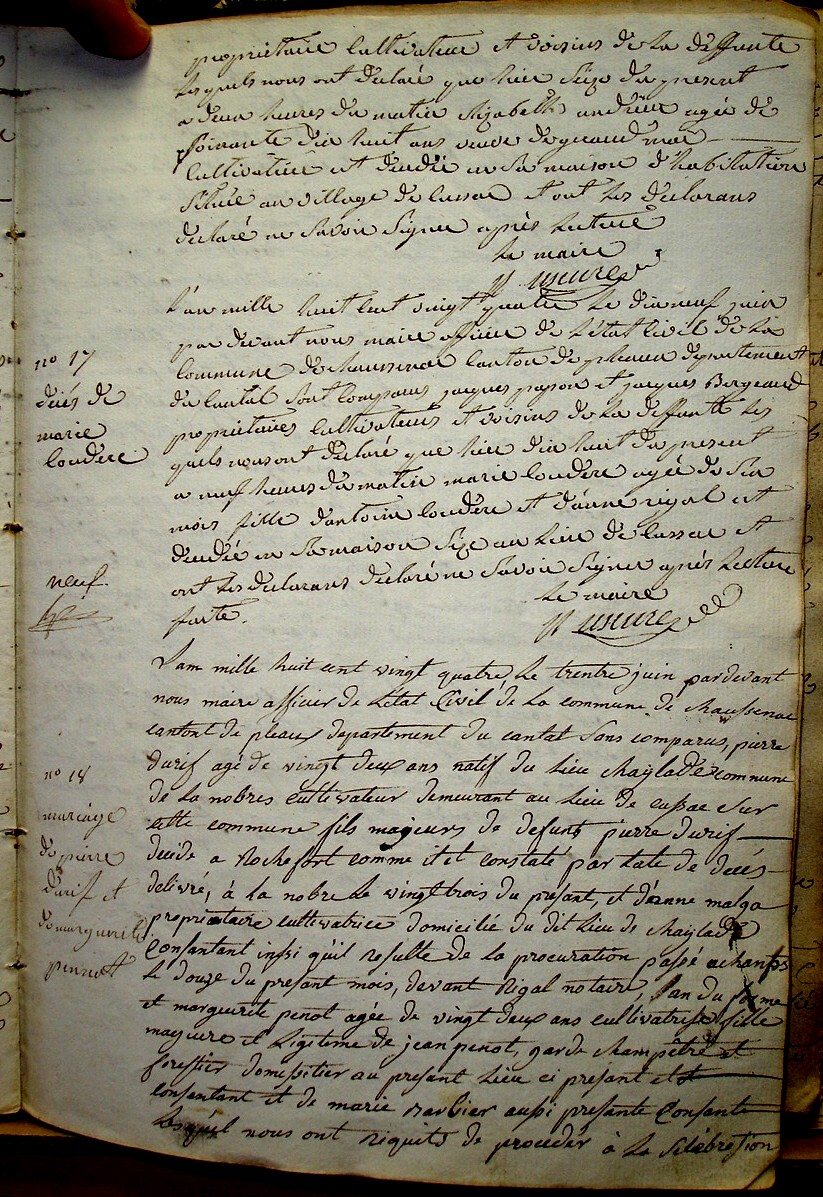 propriétaire Cultivateur et voisins de la deffunte
les quels nous ont declaré que hier seize du present
a deux heures du matin Elizabeth andrieu agée de
soixante dix huit ans veuve de geraud
Cultivatrice est decedée en sa maison d'habitation
Située au village de Cussac et ont les declarans
declaré ne Savoir Signer après lecture
Le maire
L'an mille huit Cent vingt quatre le dix neuf juin
par devant nous maire officier de l'état Civil de la
Commune de Chaussenac Canton de pleaux departement
du Cantal Sont Comparus jacques et jacques Bergeaud
propriétaires Cultivateurs et voisins de la deffunte les
quels nous ont declaré que hier dix huit du present
a neuf heures du matin marie loudere agée de six
mois fille d'antoine loudere et d'anne rigal est
decedée en Sa maison Size au lieu de Cussac et
ont les declarans declaré ne Savoir Signer après lecture
faite. Le maire
n° 17
décés de
marie
loudere
neuf
L'am mille huit cent vingt quatre le trentre juin pardevant
nous maire afficier de l'état Civil de la commune de chaussenac
cantont de pleaux departement du cantal Sons comparus, pierre
durif agé de vingt deux ans natif du lieu chaylade commune
de la nobres cultivateur demeurant au lieu de cussac Sur
cette commune fils majeurs de defunt pierre durif
decide a Rochefort comme il et constaté par late de decés
delivré, à la nobre le vingt trois du présant, et d'anne malga
propriataire cultivatrice domicilié du dit lieu de chaylade
Consantant insi qu'il resulte de la procuration passé achamps
le douze du presant mois, devant Rigal notaire,
et marguerite penot agée de vingt deux ans cultivatrise fille
mayeure et ligiteme de jean penot, garde champêtre et
forestier domessitier au presant lieu ci presant et
consantant et de marie barbier aussi presante Consante
Lesquel nous ont riquits de proceder à la Selébration
n° 18
mariage
de pierre
durif et
de marguerite
penot